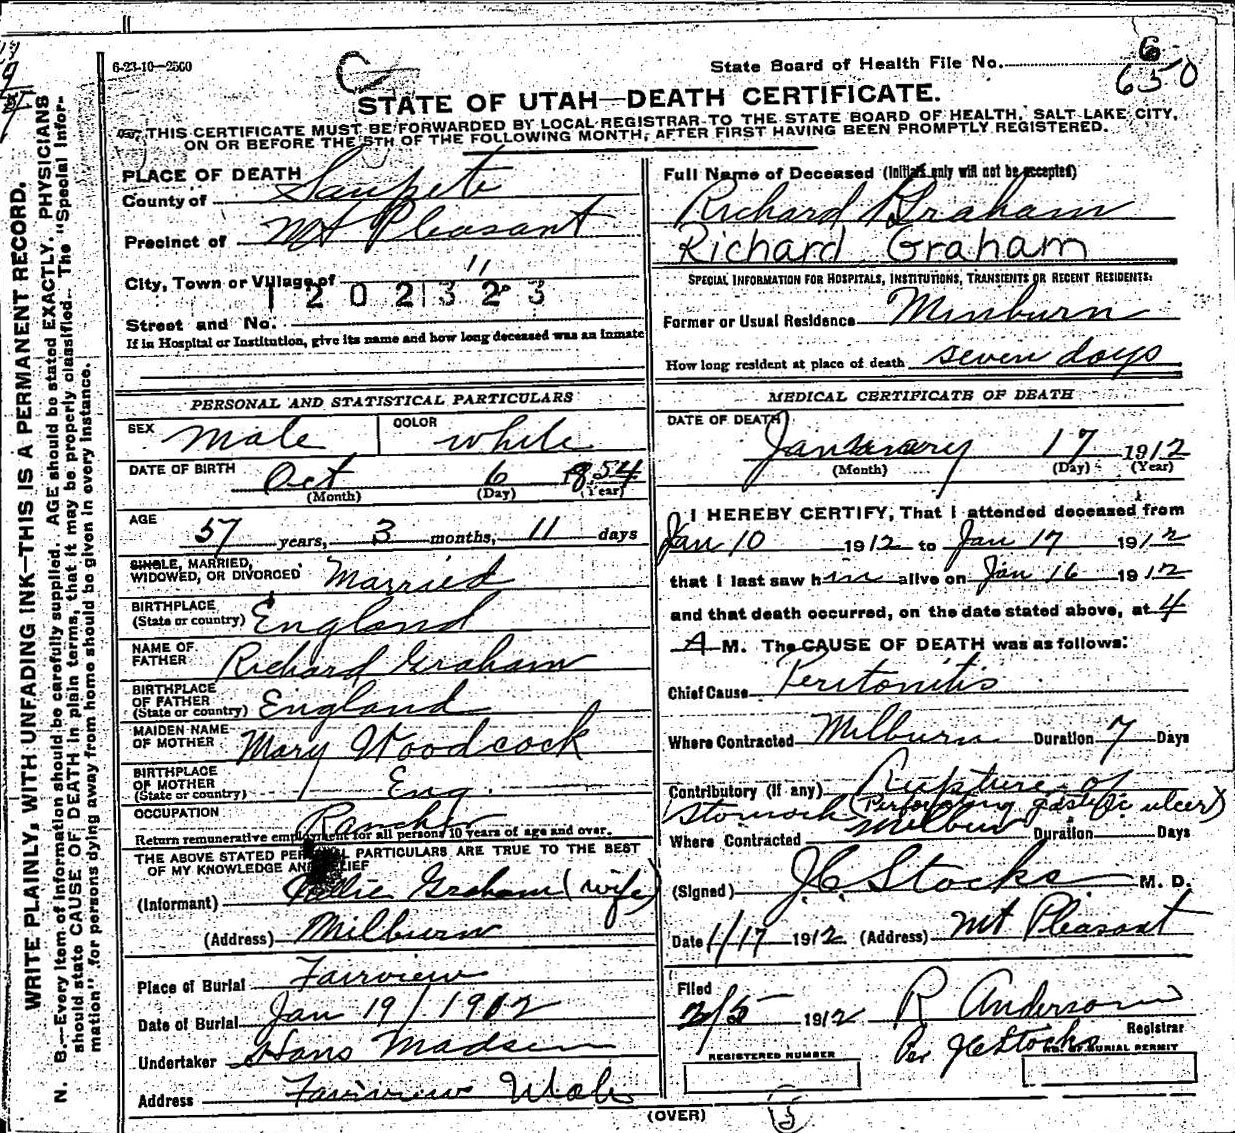 6-23-10—2500
C
State Board of Health File No. 6
650
STATE OF UTAH—DEATH CERTIFICATE.
THIS CERTIFICATE MUST BE FORWARDED BY LOCAL REGISTRAR TO THE STATE BOARD OF HEALTH, SALT LAKE CITY,
ON OR BEFORE THE 5TH OF THE FOLLOWING MONTH, AFTER FIRST HAVING BEEN PROMPTLY REGISTERED.
WRITE PLAINLY, WITH UNFADING INK—THIS IS A PERMANENT RECORD.
N. B.—Every item of information should be carefully supplied. AGE should be stated EXACTLY. PHYSICIANS
should state CAUSE OF DEATH in plain terms, that it may be properly classified. The "Special Infor-
mation" for persons dying away from home should be given in every instance.
PLACE OF DEATH
County of Sanpete
Precinct of Mt Pleasant
City, Town or Village of "
1 2 0 2 1 3 2 3
Street and No.
If in Hospital or Institution, give its name and how long deceased was an Inmate
PERSONAL AND STATISTICAL PARTICULARS
SEX Male COLOR white
DATE OF BIRTH Oct 6 1854
(Month) (Day) (Year)
AGE 57 years, 3 months, 11 days
SINGLE, MARRIED,
WIDOWED, OR DIVORCED Married
BIRTHPLACE
(State or country) England
NAME OF
FATHER Richard Graham
BIRTHPLACE
OF FATHER
(State or country) England
MAIDEN NAME
OF MOTHER Mary Woodcock
BIRTHPLACE
OF MOTHER
(State or country) Eng.
OCCUPATION Rancher
Return remunerative employment for all persons 10 years of age and over.
THE ABOVE STATED PERSONAL PARTICULARS ARE TRUE TO THE BEST
OF MY KNOWLEDGE AND BELIEF
(Informant) Graham (wife)
(Address) Milburn
Place of Burial Fairview
Date of Burial Jan 19/1912
Undertaker Hans Madsen
Address Fairview Utah
Full Name of Deceased (Initials only will not be accepted)
Richard Graham
Richard Graham
SPECIAL INFORMATION FOR HOSPITALS, INSTITUTIONS, TRANSIENTS OR RECENT RESIDENTS:
Former or Usual Residence Minburn
How long resident at place of death seven days
MEDICAL CERTIFICATE OF DEATH
DATE OF DEATH
January 17 1912
(Month) (Day) (Year)
I HEREBY CERTIFY, That I attended deceased from
Jan 10 1912 to Jan 17 1912
that I last saw him alive on Jan 16 1912
and that death occurred, on the date stated above, at 4
A M. The CAUSE OF DEATH was as follows:
Chief Cause Peritonitis
Where Contracted Milburn Duration 7 Days
Contributory (if any) Rupture of
Stomach (Perforating gastric ulcer)
Where Contracted Milburn Duration Days
(Signed) J C Stocks M. D.
Date 1/17 1912 (Address) Mt Pleasant
Filed
2/5 1912 R Anderson
Registrar
Per J C Stocks
REGISTERED NUMBER
NO. OF BURIAL PERMIT
(OVER)